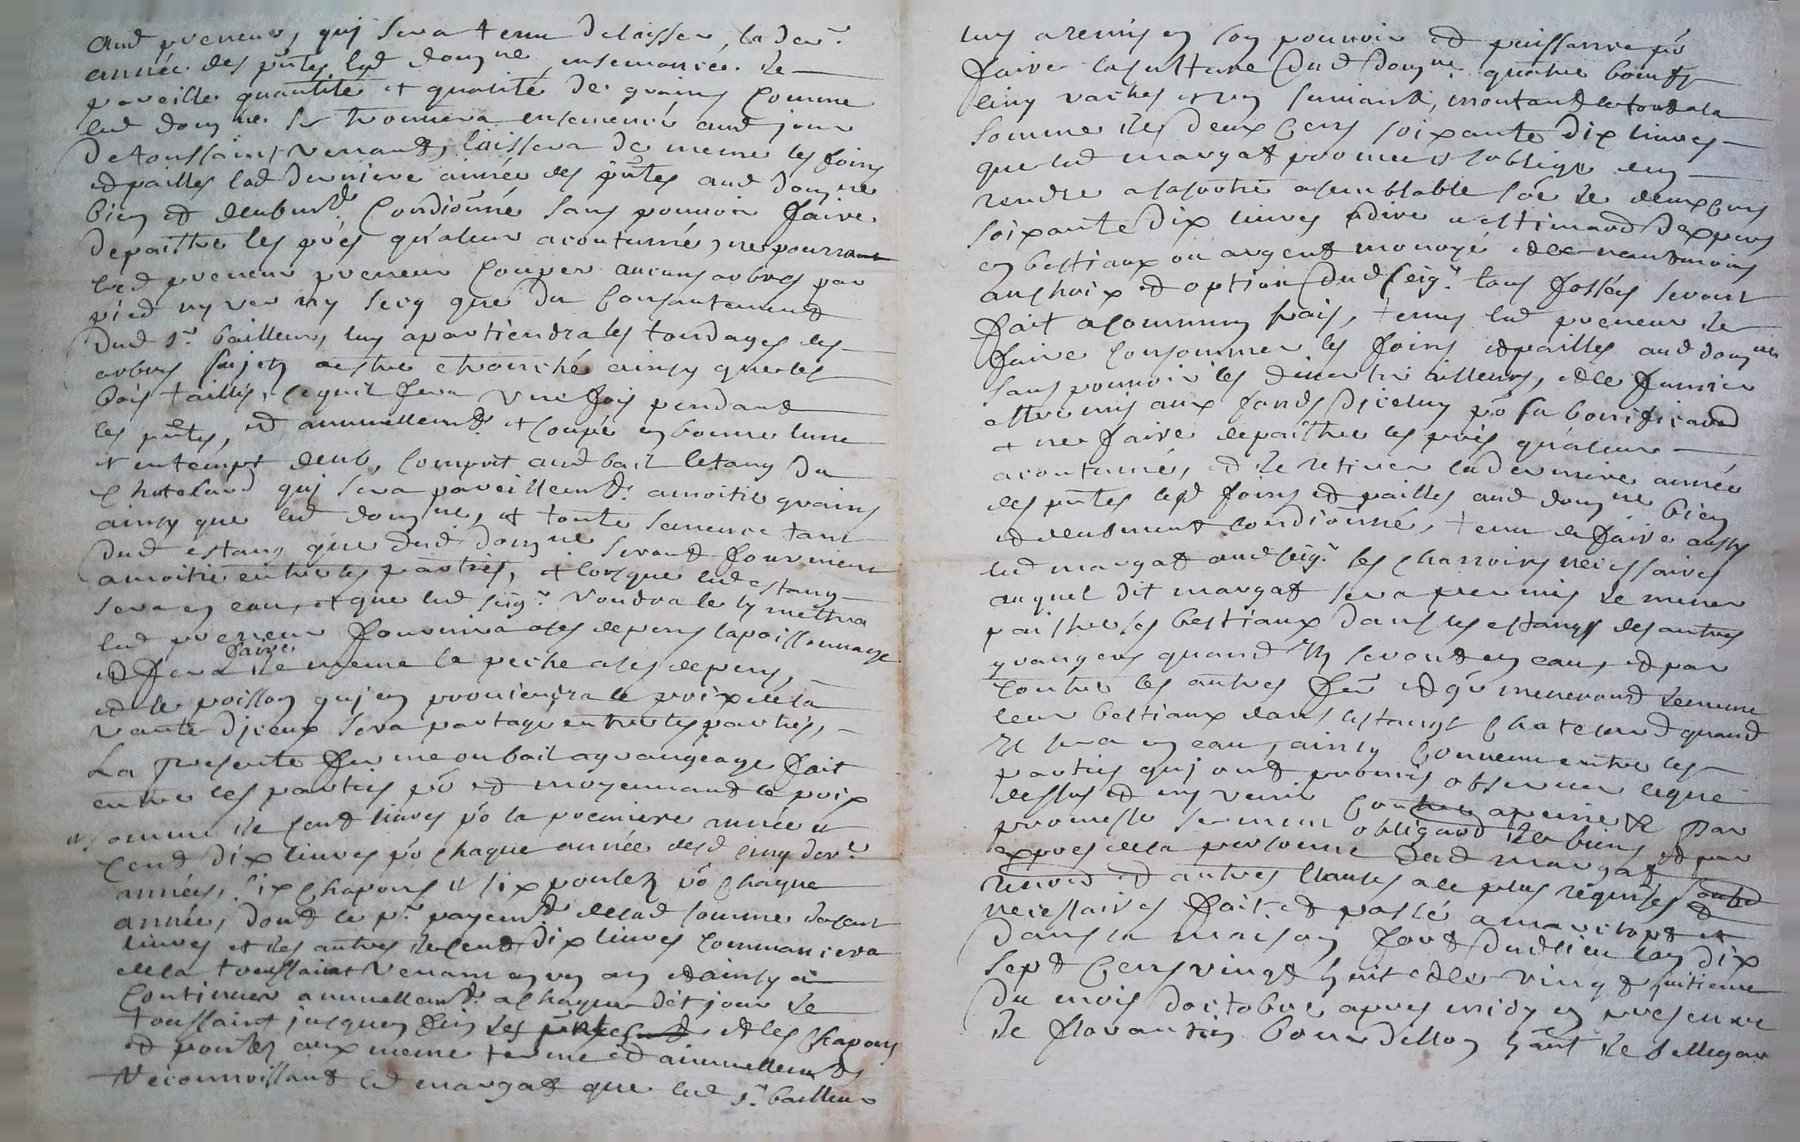 aud preneur, quj sera tenu delaisser, la der.
année des pntes led domne ensemancé de
pareille quantité et qualité de grains comme
led domne se trouvera ensemencé aud jour
de toussaint venant, laissera de meme les foins
et pailles lad derniere année des pntes aud domne
bien et deubmt condiönné sans pouvoir faire
depaitre les prés qu'aleur acoutumé, ne pourrant
led preneur preneur couper aucuns arbres par
pied ny ver ny secq que du consantement
dud sr. bailleur, luy apartiendra les tondages des
arbres sujets a estre etronché ainsy que les
bois taillis, ce quil fera une fois pendant
les pntes, et annuellemt. et coupé en bonne lune
et en tempt deub, comprit aud bail letang du
Chatelard quj sera pareillemt. amoitié grains
ainsy que led domne, et toute semence tant
dud estang que dud domne seront fournient
amoitié entre les parties, et lorsque led estang
sera en eau, et que led seigr. voudra le ly mettra
led preneur fournira ases depens lapoissonnage
et fera faire de meme la peche ases depens,
et le poisson quj en proviendra le prix de la
vante djceux sera partagé entre les parties,
La presente ferme ou bail agrangeage fait
entre les parties po et moyennant le prix
et somme de cent livres po la premiere année et
cent dix livres po chaque année desd cinq der.
années, six chapons et six poulets po chaque
année, dont le pr. payemt. de lad somme de cent
livres et des autres de cent dix livres commancera
de la toussaint venant en un an et ainsy a
continuer annuellemt. a chaque dèt jour de
toussaint jusquen fin des pntes et les chapons
et poulets aux meme terme et annuellemt
Reconnoissant led margat que led sr. bailleur
luy a remis en son pouvoir et puissance po
faire la culture dud domne quatre boeufs
cinq vaches et un jumant, montant le tout a la
somme de deux cens soixante dix livres
que led margat promet et soblige den
rendre a sa sortie a semblable soë de deux cens
soixante dix livres adire et estimard dexpers
en bestiaux ou argent monoyé et ce neantmoins
au choix et option dud seigr. tous fossés seront
fait a commun frais, tenus led preneur de
faire consommer les foins et pailles aud domne
sans pouvoir les divertir ailleurs, et le fumier
estre mis aux fonds djceluy po sa bonificaon
et ne faire depaitre les prés qu'aleur
acoutumé, et de retirer la derniere année
des pntes lesd foins et pailles aud domne bien
et deubment condiönné, tenu de faire aussy
led margat aud seigr. les charroirs necessaires
auquel dit margat sera permis de mener
paitre ses bestiaux dans les estangs des autres
grangers quand ils seront en eau, et par
contre les autres fer et gr meneront de meme
leur bestiaux dans lestangt Chatelard quand
Il sera en eau, ainsy convenu entre les
parties quj ont promis observer ce que
dessus et ny venir contre apeine & par
promesse serment obligaôn de biens et par
expres de la personne dud margat
renoncé et autres clauses a ce plus requises et
necessaires fait et passé a
dans la maison fort dudlieu lan dix
sept cens vingt huit et le vingt huitieme
du mois doctobre apres midy en presence
de Bourdillon hant de Bellegar